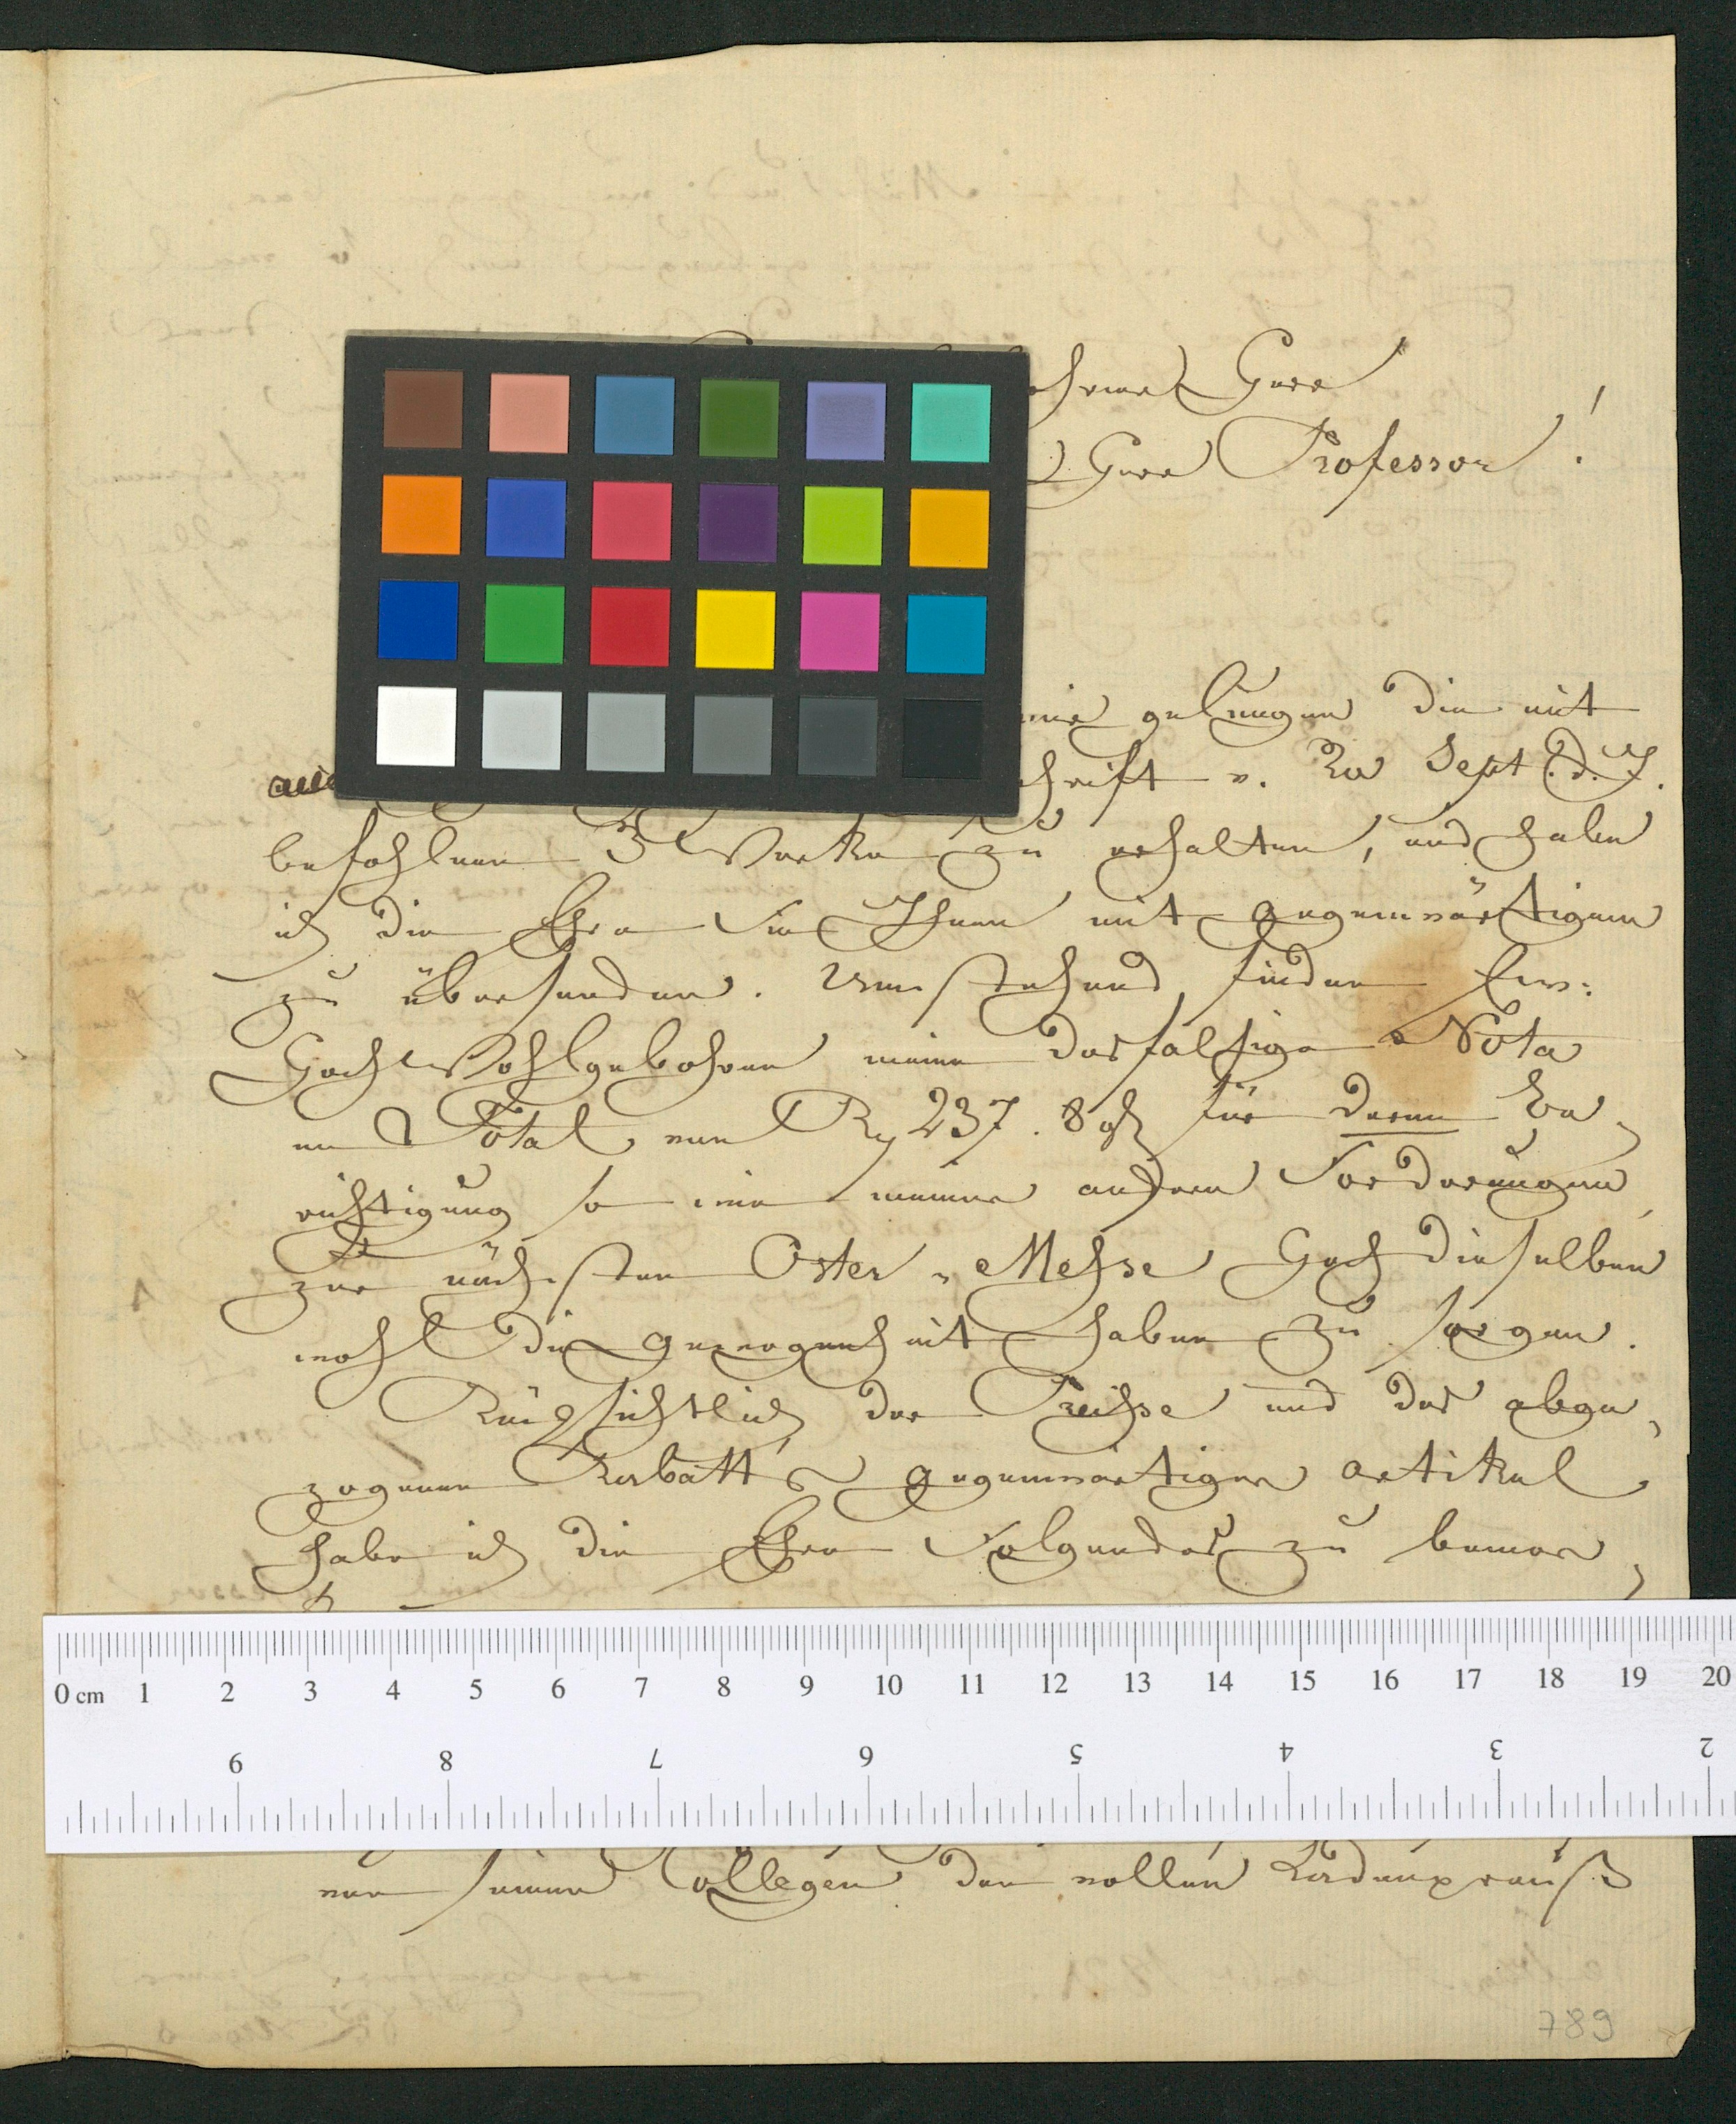 Herr
Herr Professor!
mir gelungen die mit
schrift v. Sept. d. J.
befohlnen 3 Werke zu erhalten, und habe
ich die Ehre Sie Ihnen mit gegenwärtigem
zu übersenden. Umstehend finden Ew:
HochWohlgebohren meine desfalsige Nota
im Total von Rg 237. 8 gl für deren Be-
richtigung so wie meiner andren Forderungen,
zur nächsten Oster-Messe Hochdieselben
wohl die gewogenheit haben zu sorgen.
Rücksichtlich der Preisse und des abge-
zogenen Rabatt's gegenwärtiger artikel
habe ich die Ehre Folgendes zu bemer-
0 cm 1 2 3 4 5 6 7 8 9 10 11 12 13 14 15 16 17 18 19 20
9 8 7 6 5 4 3 2
von seinem Collegen den vollen Ladenpreiß
789